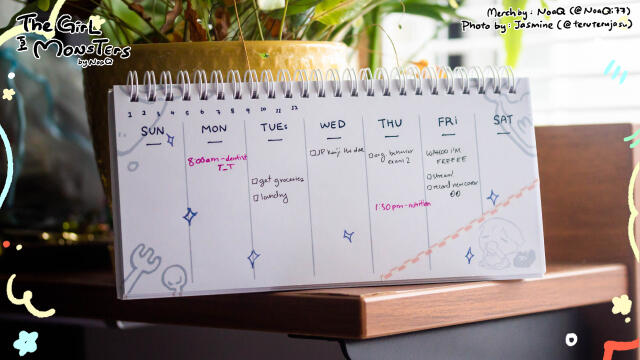 The Girl
& Monsters
by NoaQ
Merch by: NoaQ (@NoaQi77)
Photo by: Jasmine (@teruterujasu)
1 2 3 4 5 6 7 8 9 10 11 12
SUN
MON
TUES
WED
THU
FRI
SAT
8:00am-dentist
T_T
get groceries
laundry
JP kanji hw due
org behavior
exam 2
1:30pm-nutrition
WAHOO I'M
FREEEE
stream
record new cover